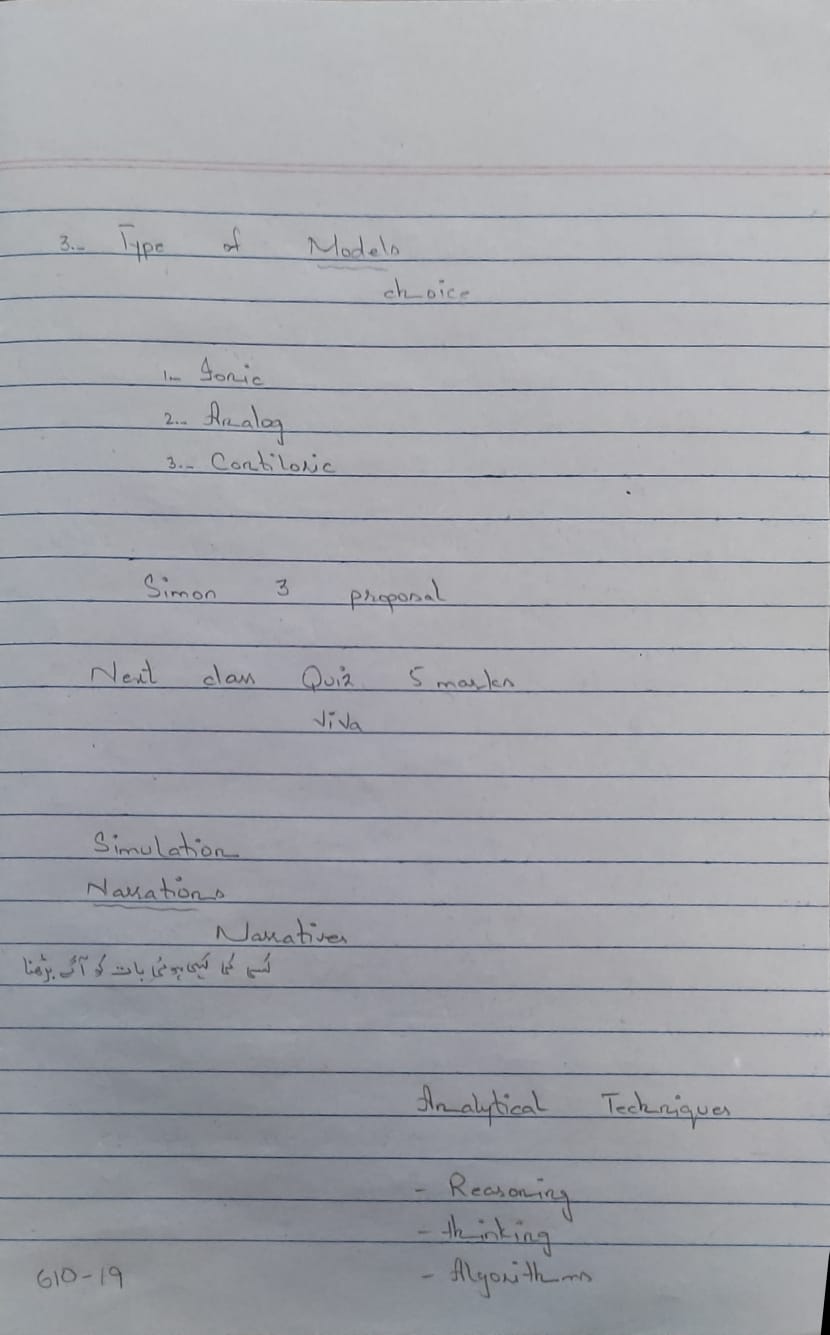 3.. Type of Models
choice
1.. Iconic
2.. Analog
3..
Simon 3 proposal
Next class Quiz 5 marks
Viva
Simulation
Narrations
Narratives
کسی کی کہی ہوئی بات کو آگے بڑھنا
Analytical Techniques
- Reasoning
- thinking
- Algorithms
610-19